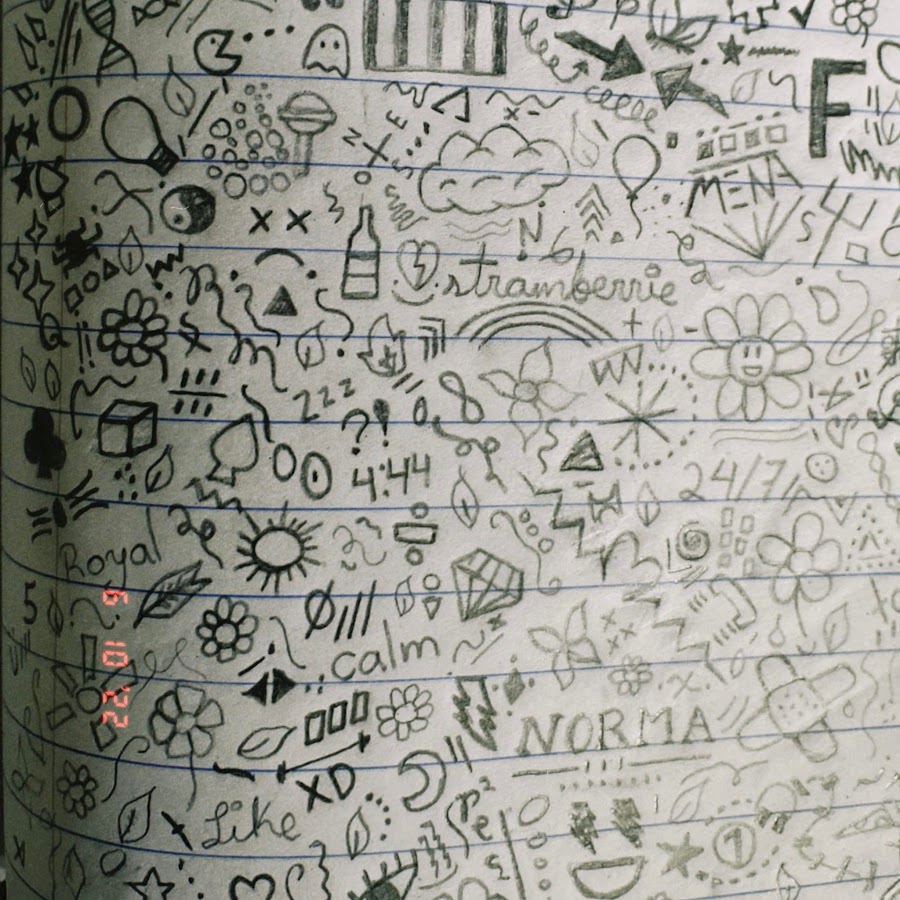 F
N E
MENA
x x
N
strawberrie
+
zzz
?!
4:44
24/7
Royal
5
calm
NORMA
XD
Like
1
6 10 '22